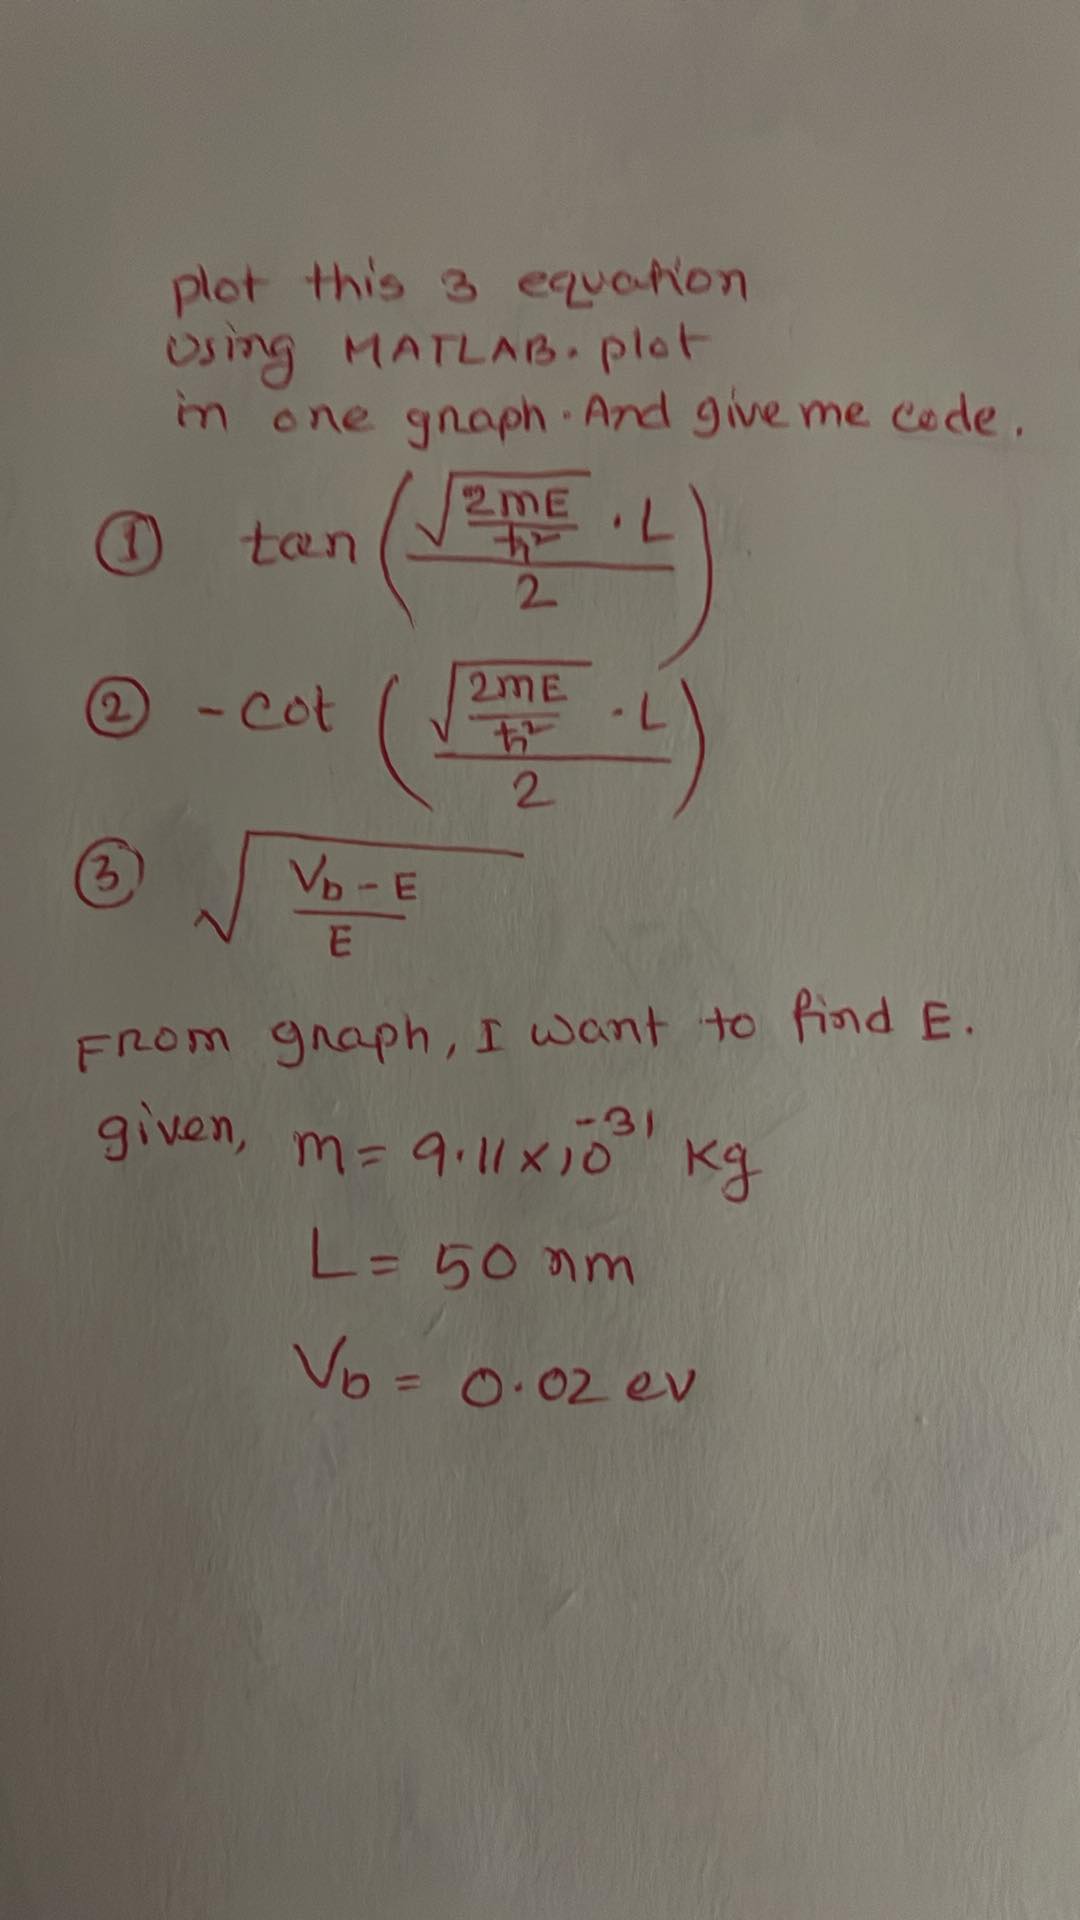 plot this 3 equation
using MATLAB. plot
in one graph. And give me code.
① tan ( √(2mE/ħ²) · L / 2 )
② - cot ( √(2mE/ħ²) · L / 2 )
③ √( (Vb - E) / E )
From graph, I want to find E.
given, m = 9.11 × 10⁻³¹ Kg
L = 50 nm
Vb = 0.02 ev